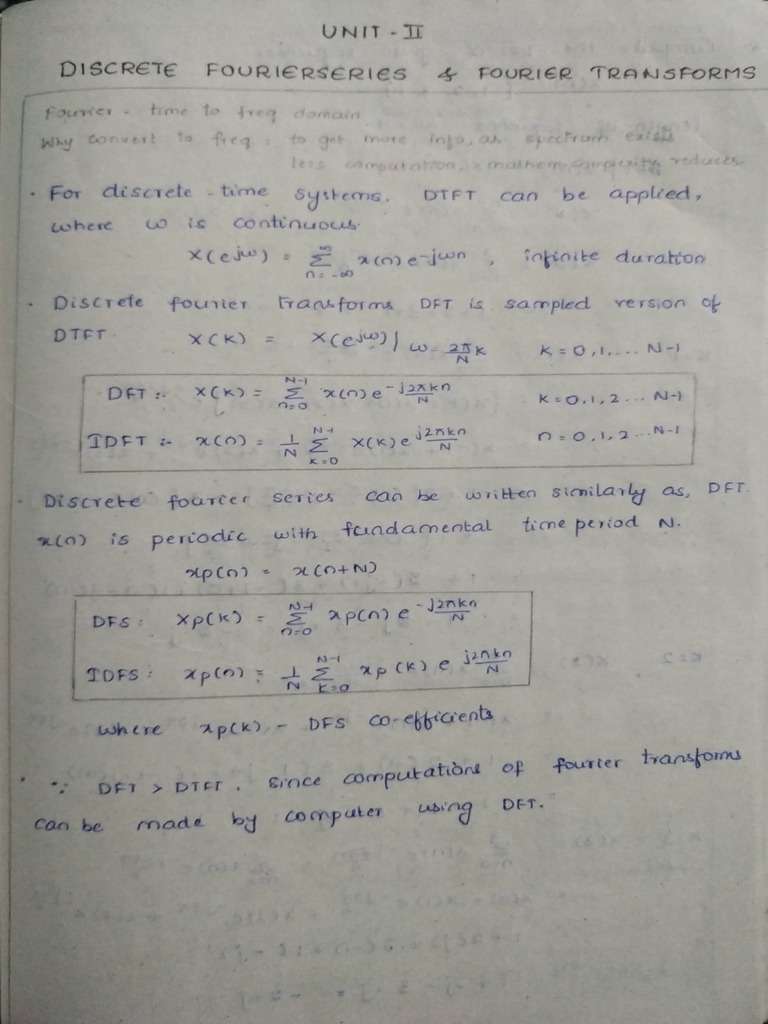 UNIT - II
DISCRETE FOURIERSERIES & FOURIER TRANSFORMS
Fourier - time to freq domain
Why convert to freq : to get more info, as spectrum exists
less computation, mathem. complexity reduces
· For discrete - time systems, DTFT can be applied,
where ω is continuous.
X(e^jω) = Σ_{n=-∞}^{∞} x(n) e^-jωn , infinite duration
· Discrete fourier transforms DFT is sampled version of
DTFT. X(K) = X(e^jω)| ω = 2π/N K K = 0,1,... N-1
DFT :- X(K) = Σ_{n=0}^{N-1} x(n) e^{-j2πkn/N} K = 0,1,2 ... N-1
IDFT :- x(n) = 1/N Σ_{K=0}^{N-1} X(K) e^{j2πkn/N} n = 0,1,2 ... N-1
· Discrete fourier series can be written similarly as, DFT.
x(n) is periodic with fundamental time period N.
xp(n) = x(n+N)
DFS : Xp(K) = Σ_{n=0}^{N-1} xp(n) e^{-j2πkn/N}
IDFS : xp(n) = 1/N Σ_{K=0}^{N-1} xp(K) e^{j2πkn/N}
where xp(K) - DFS co-efficients
· ∵ DFT > DTFT. Since computations of fourier transforms
can be made by computer using DFT.